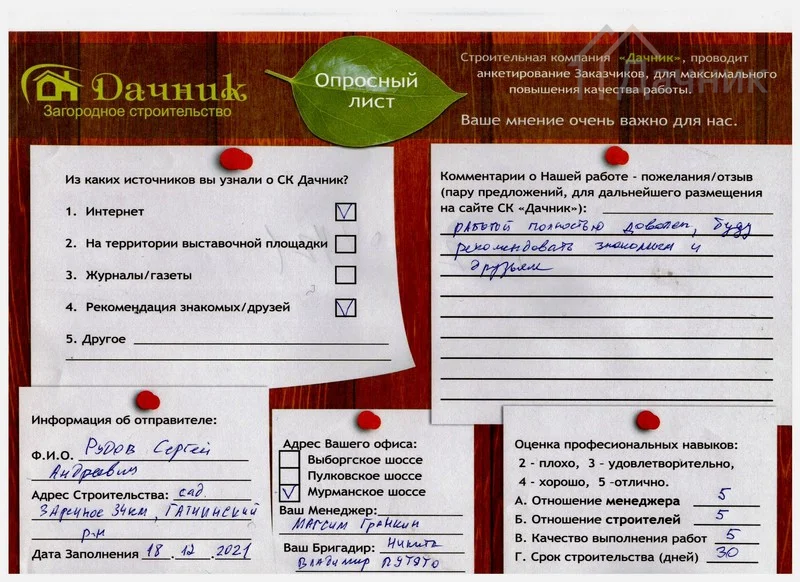 Дачник
Загородное строительство
Опросный
лист
Строительная компания «Дачник», проводит
анкетирование Заказчиков, для максимального
повышения качества работы.
Дачник
Ваше мнение очень важно для нас.
Из каких источников вы узнали о СК Дачник?
1. Интернет
2. На территории выставочной площадки
3. Журналы/газеты
4. Рекомендация знакомых/друзей
5. Другое
Комментарии о Нашей работе - пожелания/отзыв
(пару предложений, для дальнейшего размещения
на сайте СК «Дачник»):
работой полностью доволен, буду
рекомендовать знакомым и
друзьям
Информация об отправителе:
Ф.И.О. Рудов Сергей
Андреевич
Адрес Строительства: сад.
Заречное 34км, Гатчинский
р-н
Дата Заполнения 18 . 12 . 2021
Адрес Вашего офиса:
Выборгское шоссе
Пулковское шоссе
Мурманское шоссе
Ваш Менеджер:
Максим Гранкин
Ваш Бригадир: Никита
Владимир Путято
Оценка профессиональных навыков:
2 - плохо, 3 - удовлетворительно,
4 - хорошо, 5 -отлично.
А. Отношение менеджера 5
Б. Отношение строителей 5
В. Качество выполнения работ 5
Г. Срок строительства (дней) 30